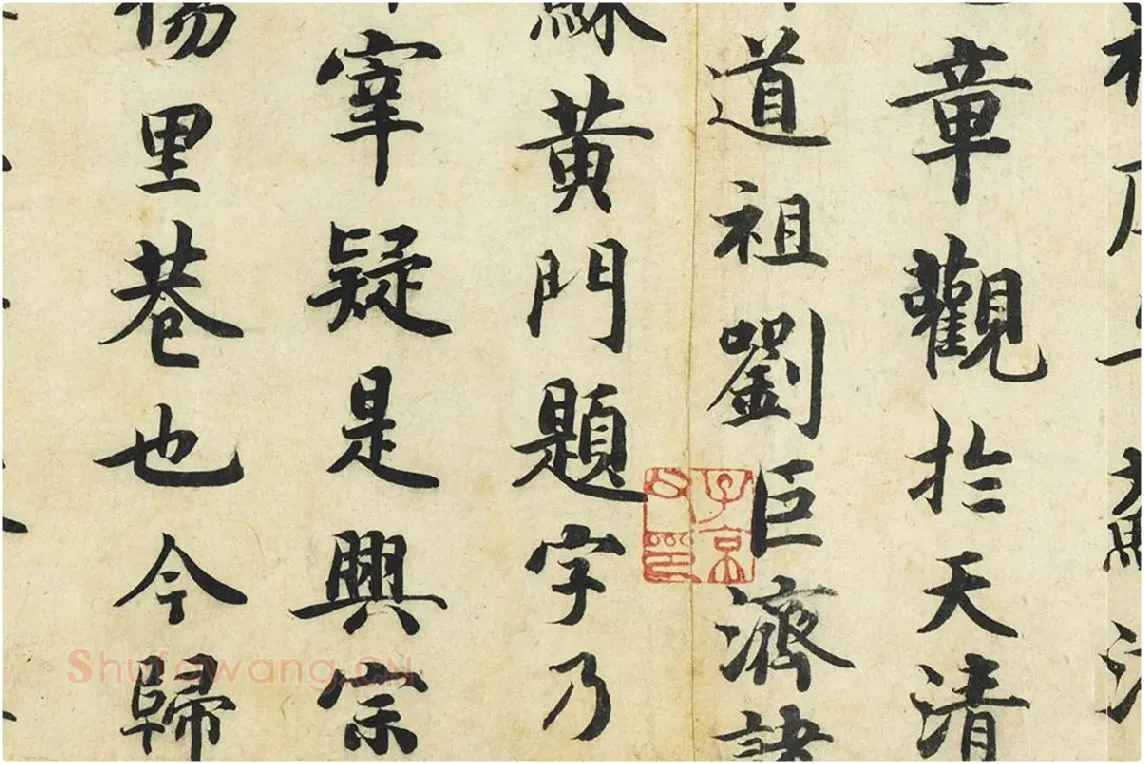 章觀於天清
道祖劉巨濟諸
蘇黃門題字乃
宰疑是興宗
里巷也今歸
子京父印
Shufawang.CN